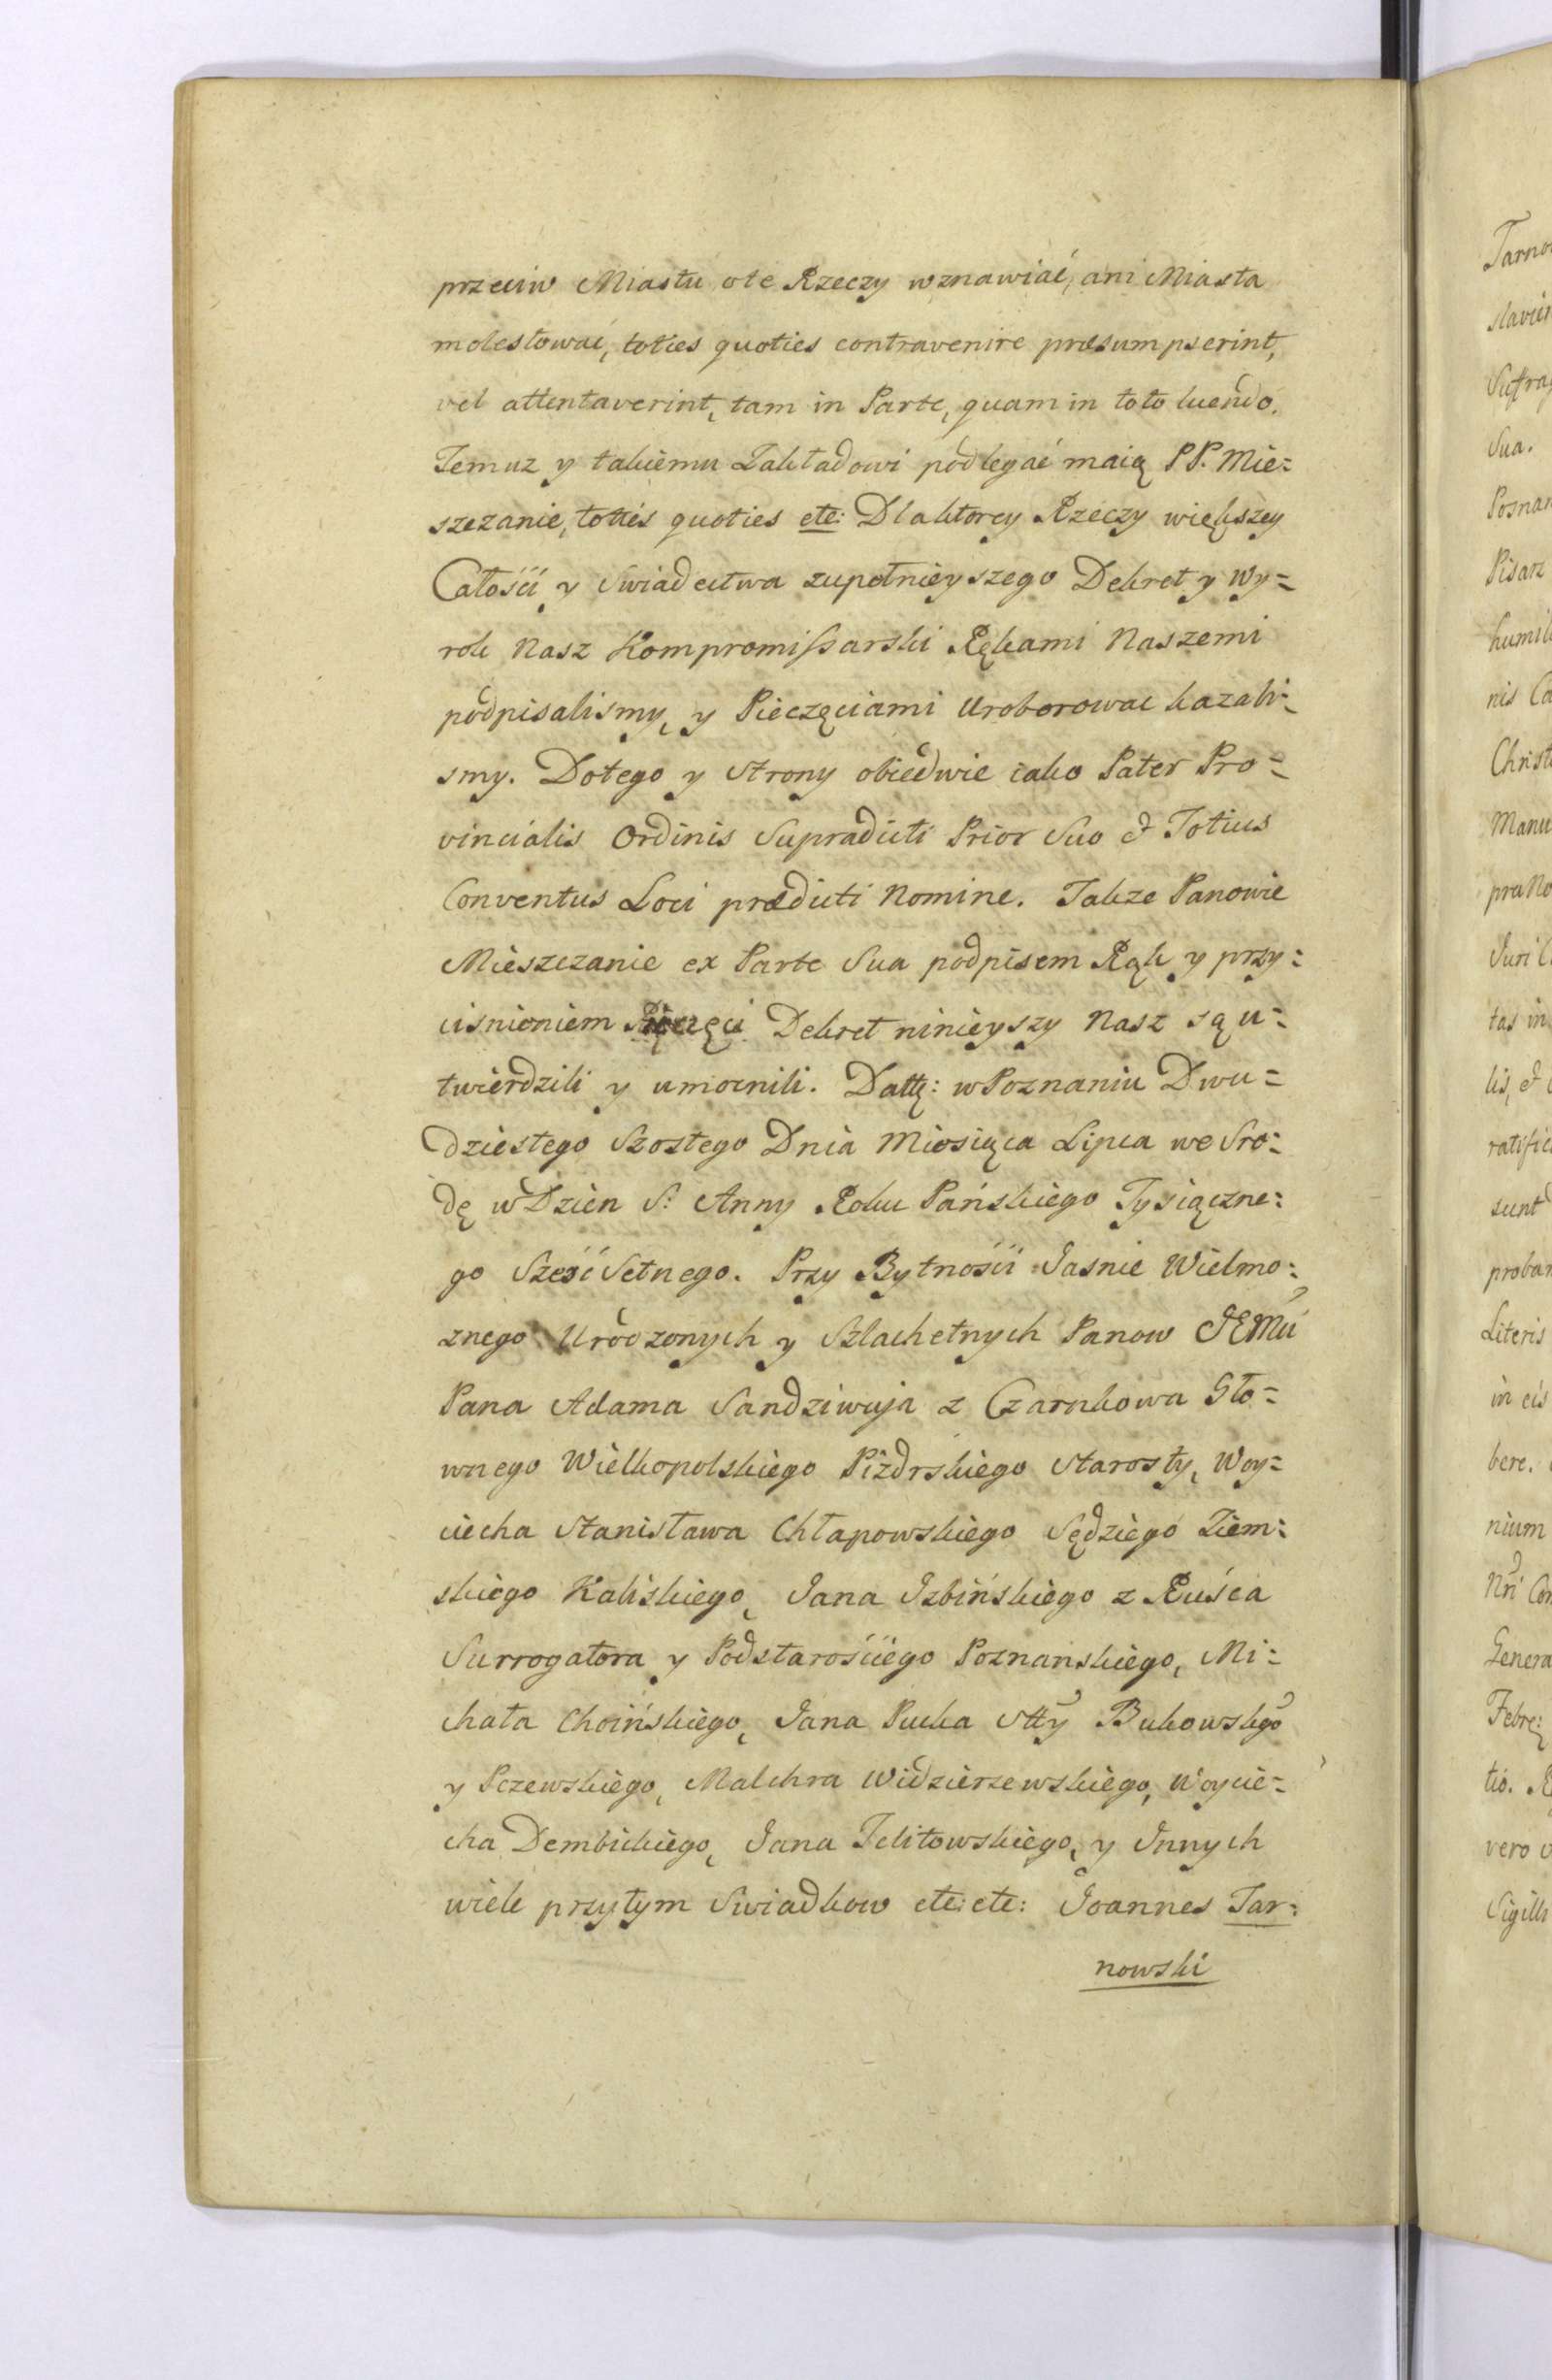 przeciw Miastu ote Rzeczy wznawiać, ani Miasta
molestować, toties quoties contravenire præsumpserint,
vel attentaverint, tam in Parte, quam in toto luendo.
Temuz y takiemu Zakładowi podlegać maią PP. Mie=
szczanie, toties quoties etc: Dlaktorey Rzeczy większey
Całości y Swiadectwa zupełnieyszego Dekret y Wy=
rok Nasz Kompromissarski Rękami Naszemi
podpisalismy, y Pieczęciami Uroborowac kazali=
smy. Dotego y Strony obiedwie iako Pater Pro=
vincialis Ordinis Supradicti Prior Suo & Totius
Conventus Loci prædicti Nomine. Takze Panowie
Mieszczanie ex Parte Sua podpisem Rąk y przy=
cisnieniem Pięczęci Dekret ninieyszy Nasz są u=
twierdzili y umocnili. Dattę: w Poznaniu Dwu=
dziestego Szostego Dnia Miesiąca Lipca we Sro=
dę w Dzien S: Anny Roku Pańskiego Tysiączne=
go Sześć Setnego. Przy Bytności Jasnie Wielmo=
znego Urodzonych y Szlachetnych Panow JEMci
Pana Adama Sandziwuja z Czarnkowa Gło=
wnego Wielkopolskiego Pizdrskiego Starosty, Woy=
ciecha Stanisława Chłapowskiego Sędziego Ziem=
skiego Kaliskiego, Jana Izbińskiego z Ruśca
Surrogatora y Podstarościego Poznanskiego, Mi=
chała Choińskiego, Jana Pucka Stty Bukowskgo
y Pczewskiego, Malchra Widzierzewskiego, Woycie=
cha Dembickiego, Jana Jelitowskiego, y Innych
wiele przytym Swiadkow etc: etc: Joannes Tar=
nowski
Tarno
slavien
Suffrag
Sua.
Posnan
Pisarz
humil
nis Ca
Christ
Manu
præ No
Juri C
tas in
lis, &
ratific
sunt
proban
Literis
in eis
bere.
nium
Nri Con
Genera
Febre:
tio. R
vero
Sigilli